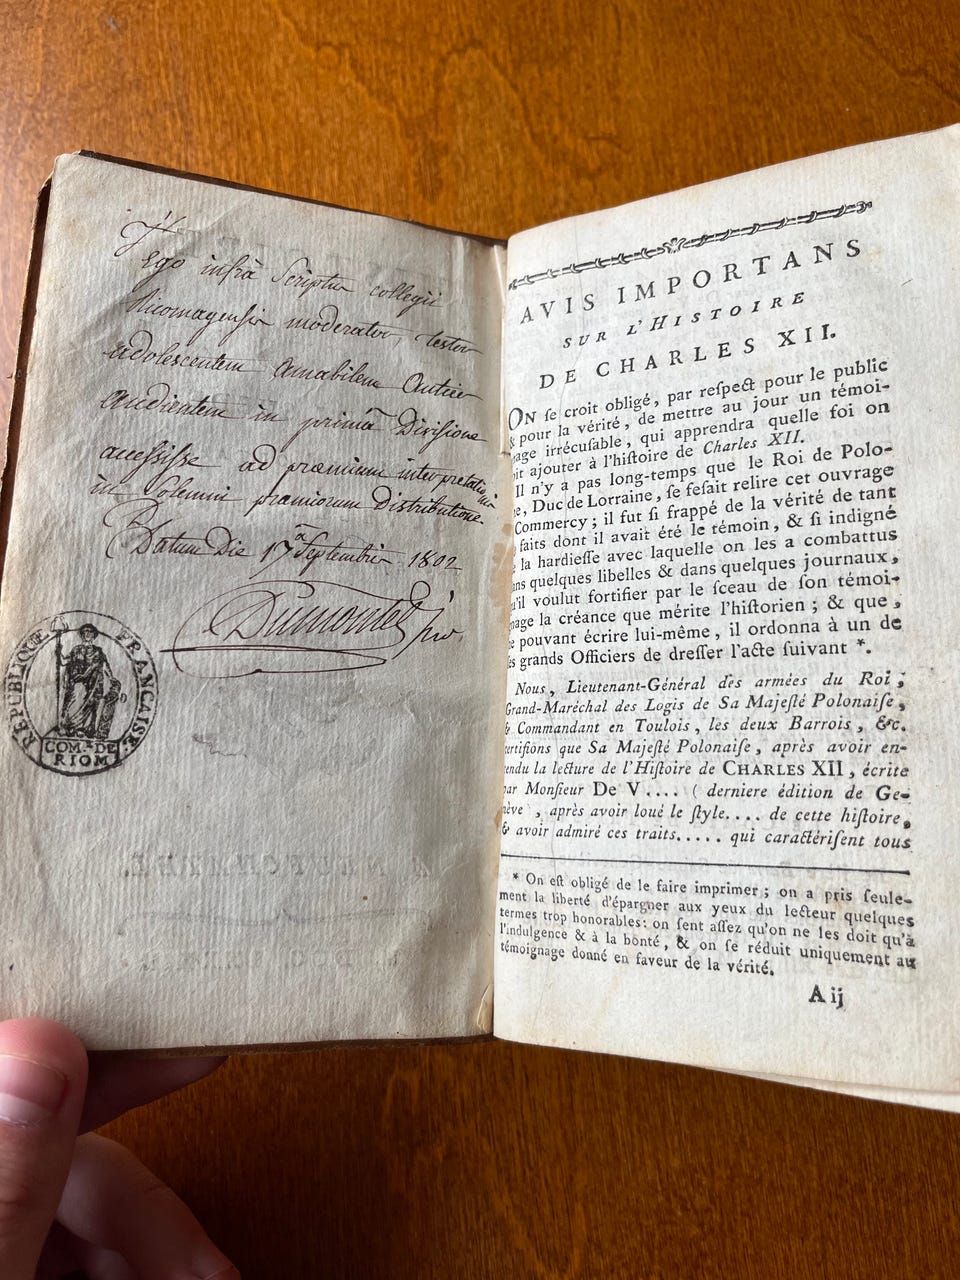 Ego infrà Scriptus collegii
Ricomagensis moderator, testor
adolescentem Amabilem Autier
audientem in primâ Divisione
accessisse ad præmium interpretationis
in Solemni præmiorum Distributione.
Datum Die 17â Septembris 1802
Dumontel
RÉPUBLIQUE FRANÇAISE.
COM.^NE DE
RIOM
AVIS IMPORTANS
SUR L'HISTOIRE
DE CHARLES XII.
ON ſe croit obligé, par reſpect pour le public
& pour la vérité, de mettre au jour un témoi-
age irrécuſable, qui apprendra quelle foi on
it ajouter à l'hiſtoire de Charles XII.
Il n'y a pas long-temps que le Roi de Polo-
e, Duc de Lorraine, ſe feſait relire cet ouvrage
Commercy ; il fut ſi frappé de la vérité de tant
faits dont il avait été le témoin, & ſi indigné
la hardieſſe avec laquelle on les a combattus
ns quelques libelles & dans quelques journaux,
u'il voulut fortifier par le ſceau de ſon témoi-
nage la créance que mérite l'hiſtorien ; & que,
e pouvant écrire lui-même, il ordonna à un de
es grands Officiers de dreſſer l'acte suivant *.
Nous, Lieutenant-Général des armées du Roi,
Grand-Maréchal des Logis de Sa Majeſté Polonaiſe,
& Commandant en Toulois, les deux Barrois, &c.
certifions que Sa Majeſté Polonaiſe, après avoir en-
tendu la lecture de l'Hiſtoire de CHARLES XII, écrite
par Monſieur DE V.... ( derniere édition de Ge-
nève , après avoir loué le ſtyle.... de cette hiſtoire,
& avoir admiré ces traits..... qui caractériſent tous
* On eſt obligé de le faire imprimer ; on a pris ſeule-
ment la liberté d'épargner aux yeux du lecteur quelques
termes trop honorables: on ſent aſſez qu'on ne les doit qu'à
l'indulgence & à la bonté, & on ſe réduit uniquement au
témoignage donné en faveur de la vérité.
A ij